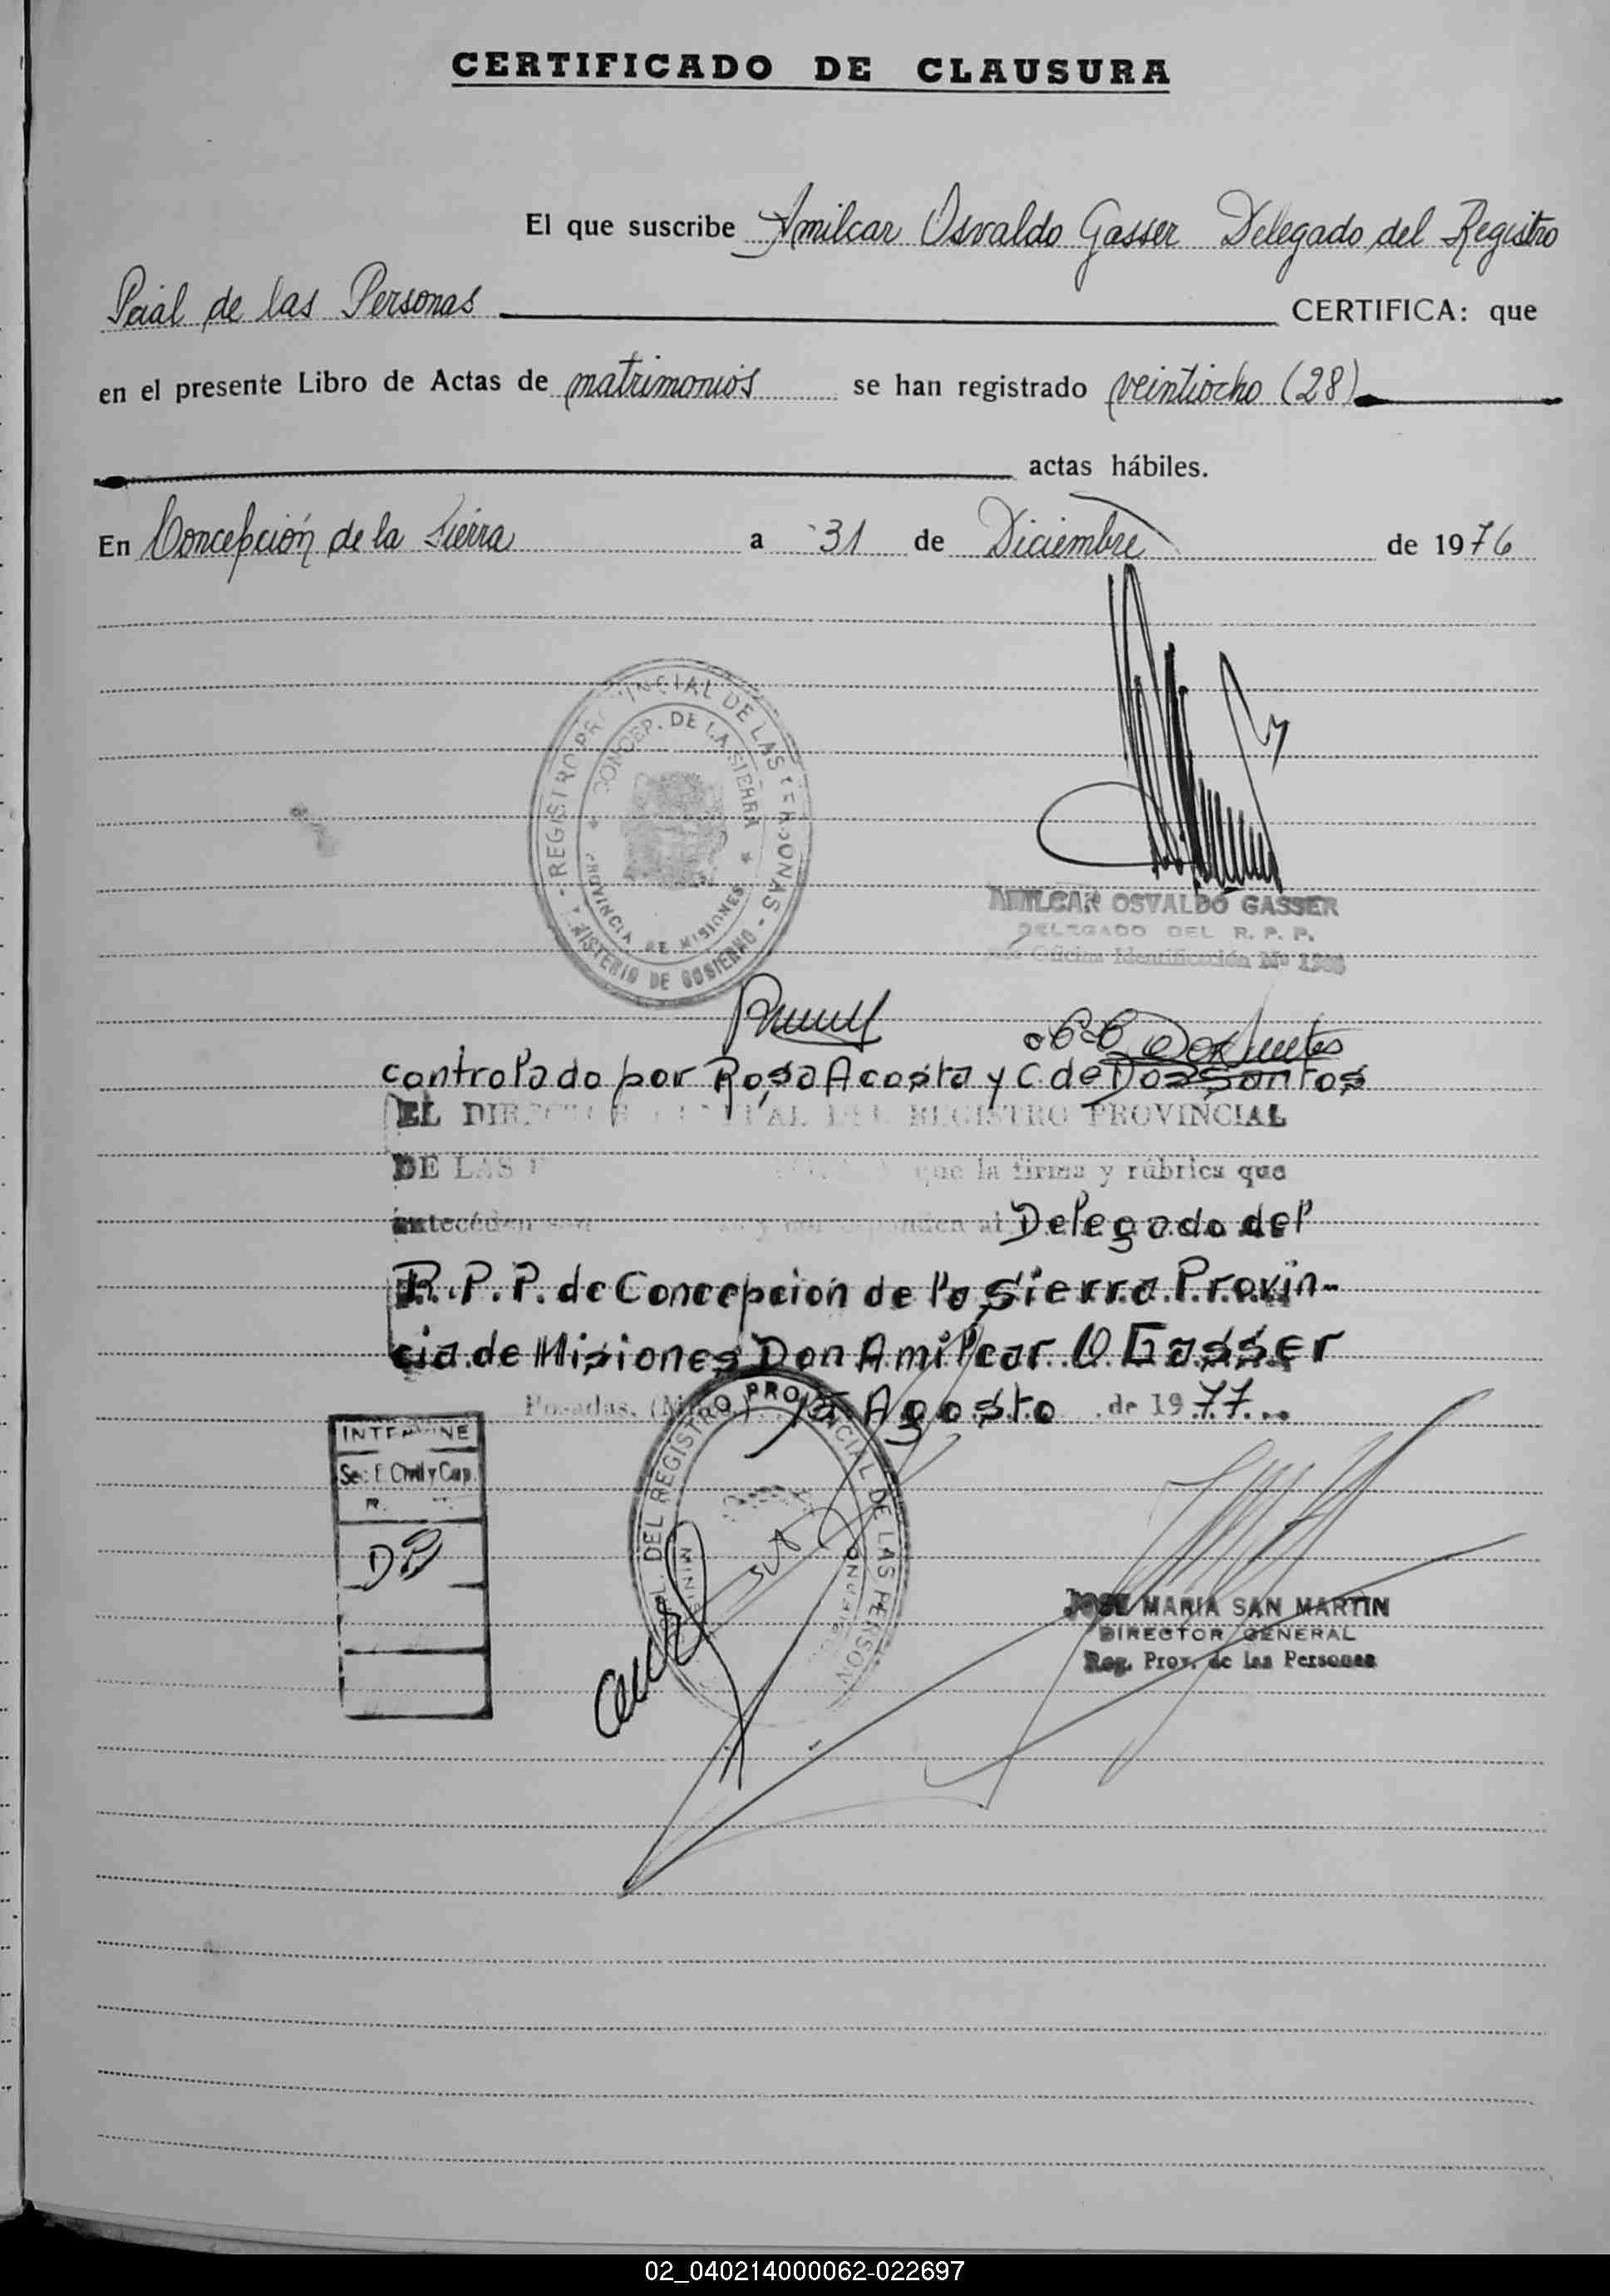 CERTIFICADO DE CLAUSURA
El que suscribe Amilcar Osvaldo Gasser Delegado del Registro
Pcial de las Personas CERTIFICA: que
en el presente Libro de Actas de matrimonios se han registrado veintiocho (28)
actas hábiles.
En Concepción de la Sierra a 31 de Diciembre de 1976
REGISTRO PROVINCIAL DE LAS PERSONAS
CONCEP. DE LA SIERRA
PROVINCIA DE MISIONES
MINISTERIO DE GOBIERNO
AMILCAR OSVALDO GASSER
DELEGADO DEL R. P. P.
Oficina Identificación Nº
controlado por Rosa Acosta y C. de Dos Santos
EL DIRECTOR GENERAL DEL REGISTRO PROVINCIAL
DE LAS que la firma y rúbrica que
anteceden son y corresponden al Delegado del
R. P. P. de Concepcion de la Sierra Provin-
cia de Misiones Don Amilcar O Gasser
Posadas, (Mnes.) 15 Agosto de 1977
INTERVINE
Sec: E. Civil y Cap.
DEL REGISTRO PROVINCIAL DE LAS PERSON
JOSE MARIA SAN MARTIN
DIRECTOR GENERAL
Reg. Prov. de las Personas
02_040214000062-022697